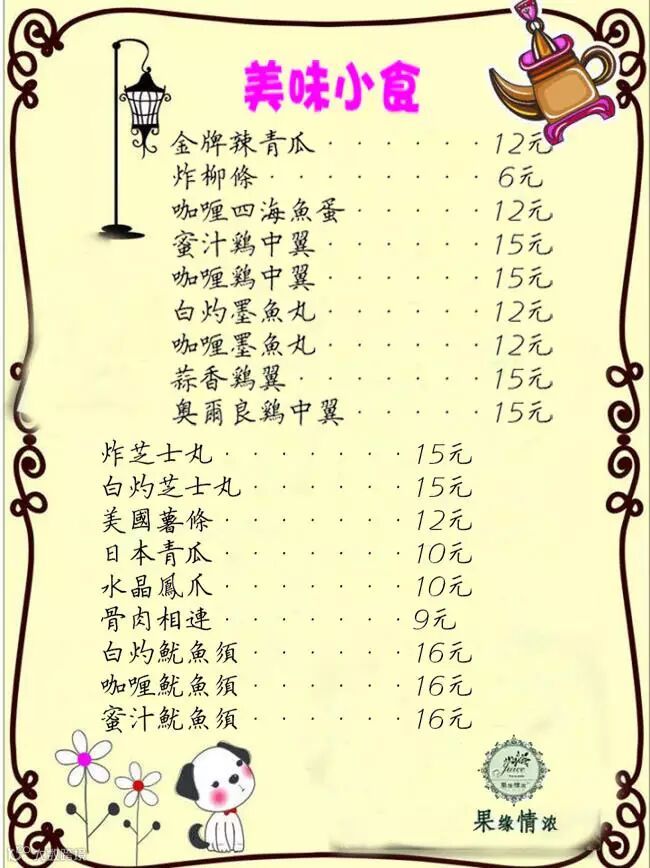 美味小食
金牌辣青瓜·······12元
炸柳條·········6元
咖喱四海魚蛋······12元
蜜汁鷄中翼·······15元
咖喱鷄中翼·······15元
白灼墨魚丸·······12元
咖喱墨魚丸·······12元
蒜香鷄翼········15元
奥爾良鷄中翼······15元
炸芝士丸········15元
白灼芝士丸·······15元
美國薯條········12元
日本青瓜········10元
水晶鳳爪········10元
骨肉相連········9元
白灼魷魚須·······16元
咖喱魷魚須·······16元
蜜汁魷魚須·······16元
Juice
果缘情浓
果缘情浓